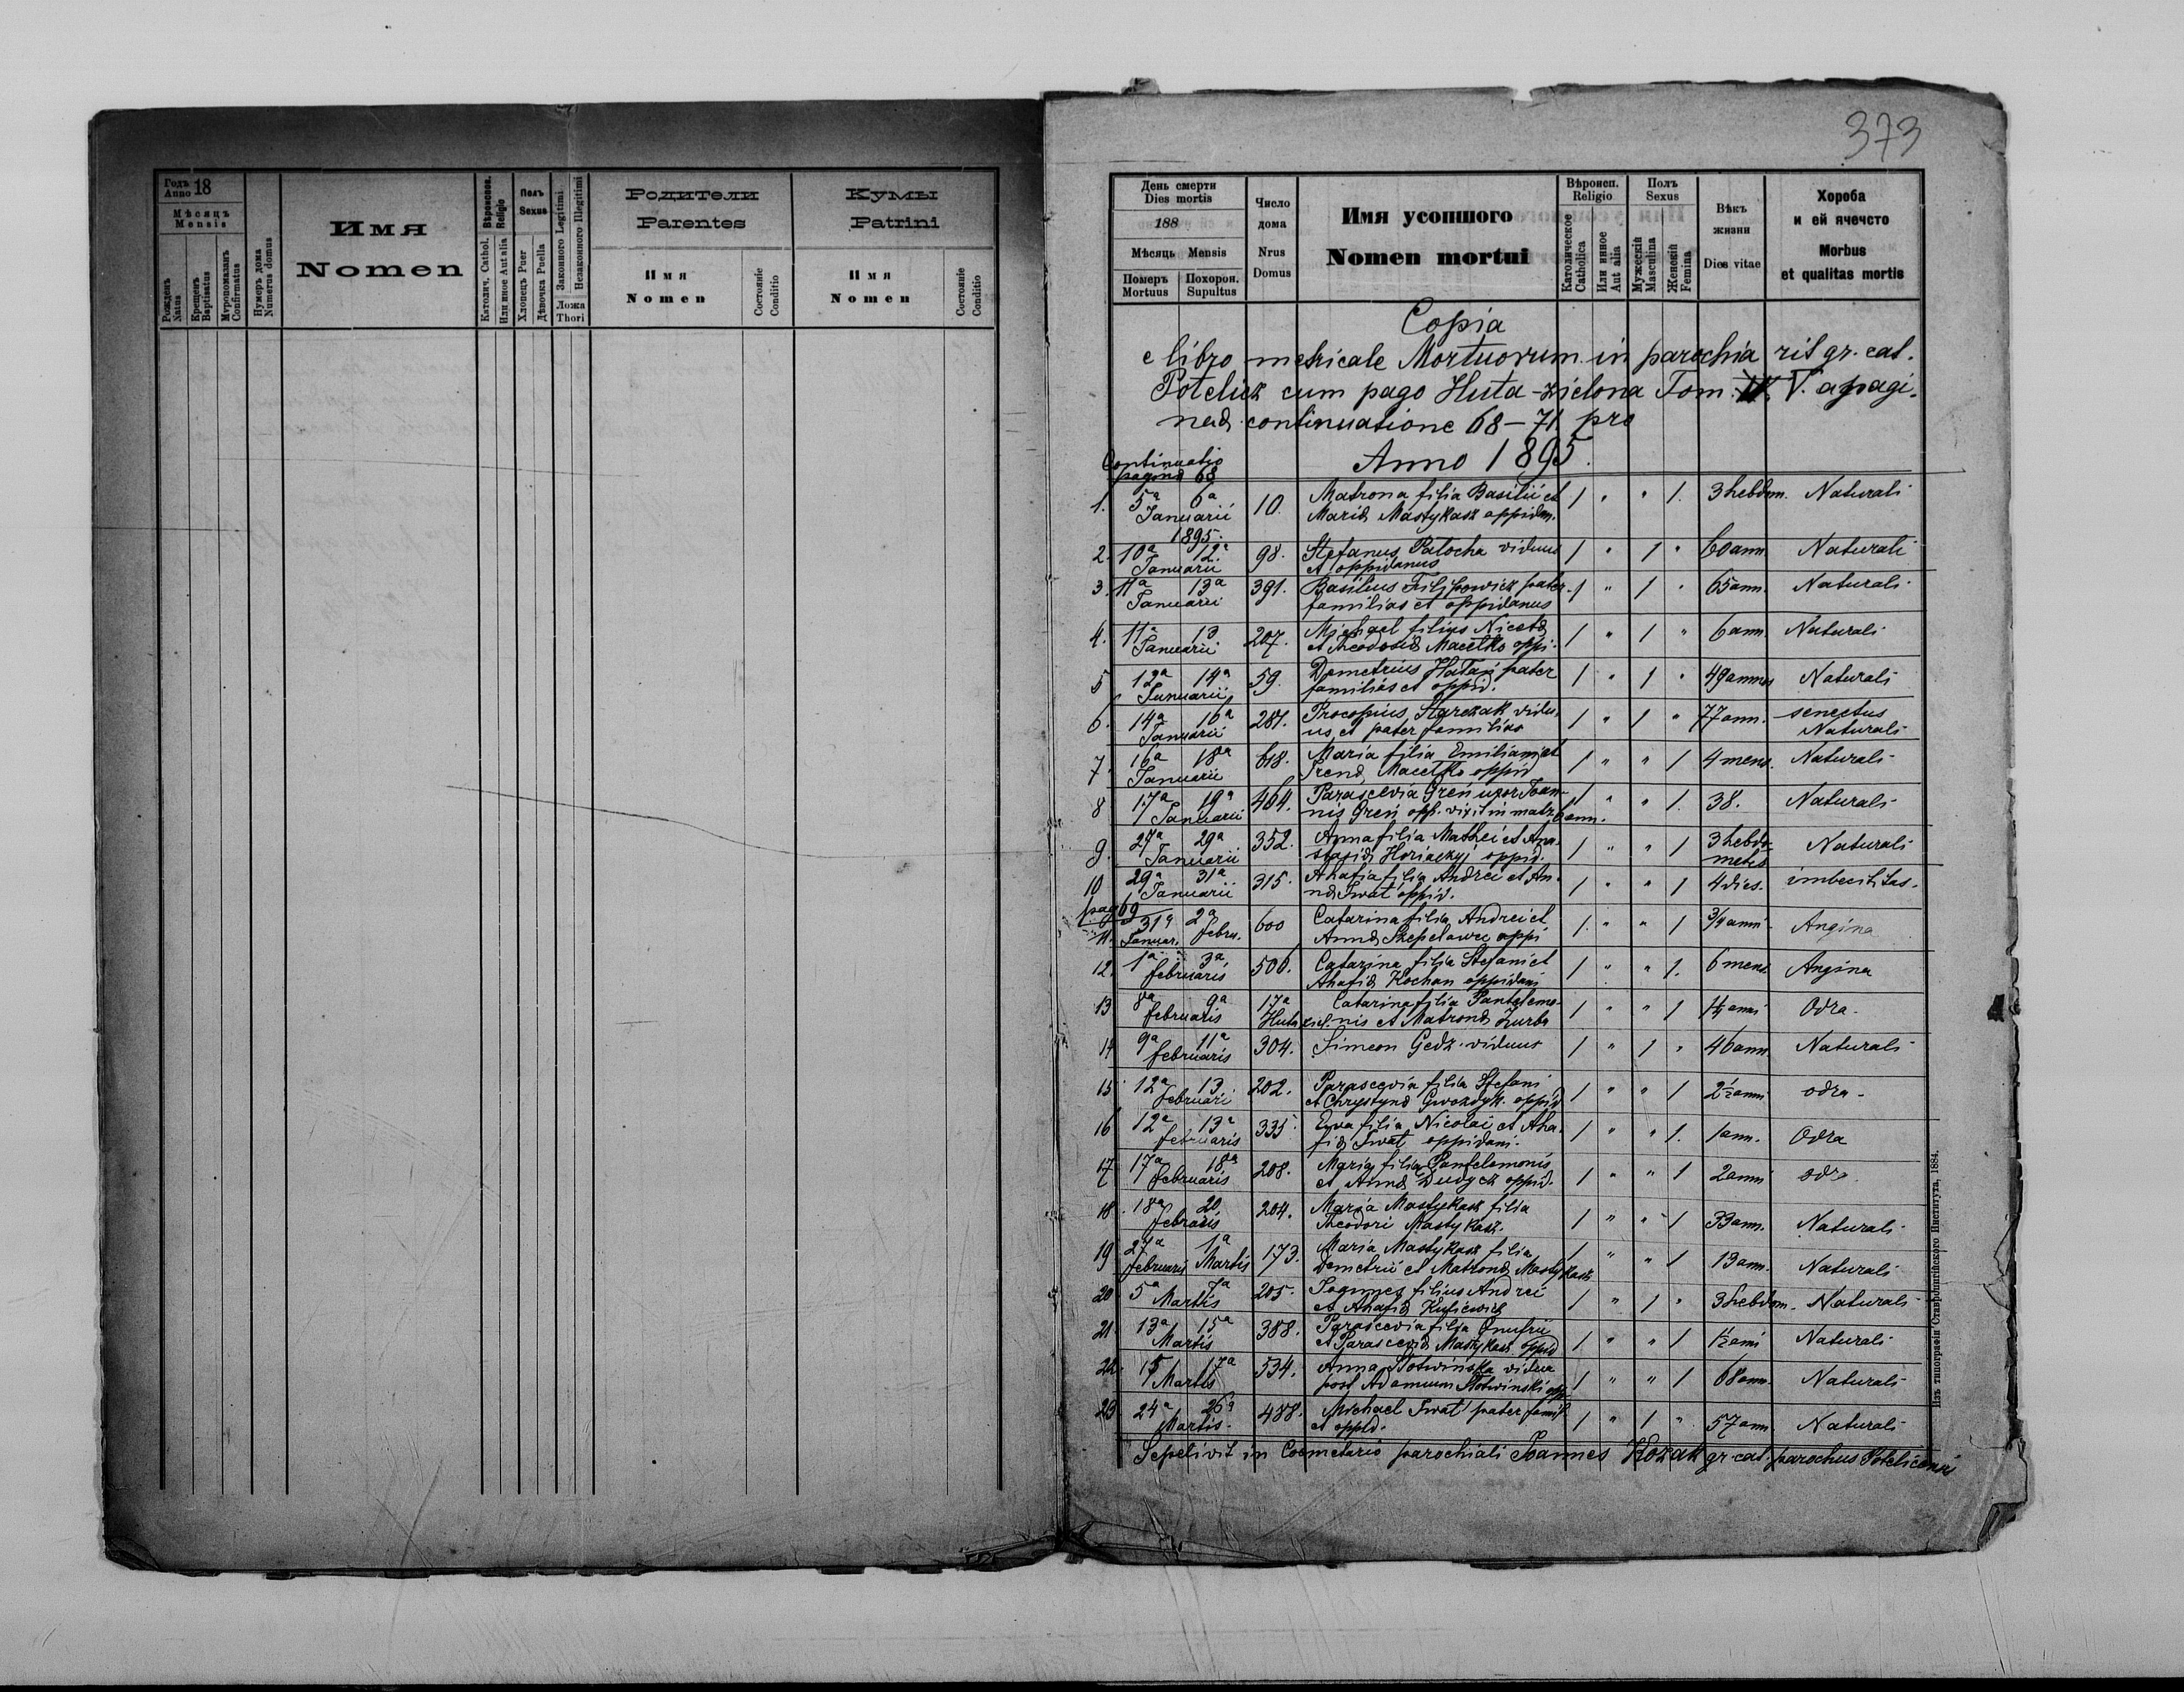 Годъ 18
Anno
Мѣсяцъ
Mensis
Рожденъ
Natus
Крещенъ
Baptisatus
Мѵропомазанъ
Confirmatus
Нумеръ дома
Numerus domus
Имя
Nomen
Вѣроиспов.
Religio
Католич. Cathol.
Или иное Aut alia
Полъ
Sexus
Хлопецъ Puer
Дѣвочка Puella
Законного Legitimi
Незаконного Illegitimi
Ложа
Thori
Родители
Parentes
Имя
Nomen
Состояніе
Conditio
Кумы
Patrini
Имя
Nomen
Состояніе
Conditio
373
День смерти
Dies mortis
188
Мѣсяцъ Mensis
Померъ
Mortuus
Похорон.
Supultus
Число
дома
Nrus
Domus
Имя усопшого
Nomen mortui
Вѣроисп.
Religio
Католическое
Catholica
Или инное
Aut alia
Полъ
Sexus
Мужескій
Masculina
Женскій
Femina
Вѣкъ
жизни
Dies vitae
Хороба
и ей ячечсто
Morbus
et qualitas mortis
Copia
e libro metricale Mortuorum in parochia rit gr. cat.
Potelicz cum pago Huta-zielona Tom. V. a pagi.
na continuatione 68-71 pro
Anno 1895.
Continuatio
pagina 68
1. 5a 6a 10. Matrona filia Basilii et 1 " " 1. 3 hebdom. Naturali
Januarii Maria Mastykasz oppidan.
1895.
2. 10a 12a 98. Stefanus Palocha viduus 1 " 1 " 60 ann. Naturali
Januarii et oppidanus
3. 11a 13a 391. Basilius Filipowicz pater 1 " 1 " 65 ann. Naturali
Januarii familias et oppidanus
4. 11a 13 207. Michael filius Niceta 1 " 1 " 6 ann. Naturali
Januarii et Theodosia Macelko oppi.
5 12a 14a 59. Demetrius Hatan pater 1 " 1 " 49 annos Naturali
Januarii familias et oppid.
6. 14a 16a 287. Procopius Starczak vidu- 1 " 1 " 77 ann. senectus
Januarii us et pater familias Naturali
7. 16a 18a 618. Maria filia Emiliani et 1 " " 1 4 mens. Naturali
Januarii Irena Macelko oppid
8 17a 19a 464. Parascevia Greń uxor Joan- 1 " " 1. 38. Naturali
Januarii nis Greń opp. vixit in matr. 6 ann.
9. 27a 29a 352. Anna filia Mathei et Ana- 1 " " 1 3 hebdo- Naturali
Januarii stasia Horiackyj oppid.
10 29a 31a 315. Ahafia filia Andrei et An- 1 " " 1 4 dies. imbecilitas.
Januarii na Iwat oppid.
pag 69
11. 31a 2a 600 Catarina filia Andrei et 1. " " 1 3/4 anni Angina
Januar. Febru. Anna Szepelawec oppi
12. 1a 3a 506. Catarina filia Stefani et 1 " " 1. 6 mens. Angina
februaris Ahafia Kochan oppidani
13 8a 9a 17a Catarina filia Pantelemo- 1 " " 1 anni Odra.
februaris Huta ziel. nis et Matrona Zurba
14 9a 11a 304. Simeon Gedz viduus 1 " 1 " 46 ann. Naturali
februaris
15 12a 13 202. Parascevia filia Stefani 1 " " 1 2½ anni odra.
februari et Chrystyna Gwozdyk oppid
16 12a 13a 335. Ewa filia Nicolai et Aha- 1 " " 1. 1 ann. Odra
februaris fia Iwat oppidani.
17 17a 18a 208. Maria filia Pantelemonis 1 " " 1 2 anni odra.
februaris et Anna Dudycz oppid.
18. 18a 20 204. Maria Mastykasz filia 1 " " 1 33 ann. Naturali
februaris Theodori Mastykasz.
19 27a 1a 173. Maria Mastykasz filia 1 " " 1 13 ann. Naturali
februarij Martis Demetrii et Matrona Mastykasz
20 5a 7a 205. Joannes filius Andrei 1 " 1 " 3 hebdom. Naturali
Martis et Ahafia
21 13a 15a 388. Parascevia filia Onufrii 1. " " 1 1½ anni Naturali
Martis et Parascevia Mastykasz oppid
22 15 17a 534. Anna Słotwińska vidua 1 " " 1 68 ann. Naturali
Martis post Adamum Słotwiński opp.
23 24a 26a 488. Michael Iwat pater famil 1 " 1 " 57 ann Naturali
Martis. et oppid.
Sepelivit in Coemetario parochiali Joannes Kozak gr-cat. parochus Potelicensis
Изъ типографіи Ставропигійского Института, 1884.